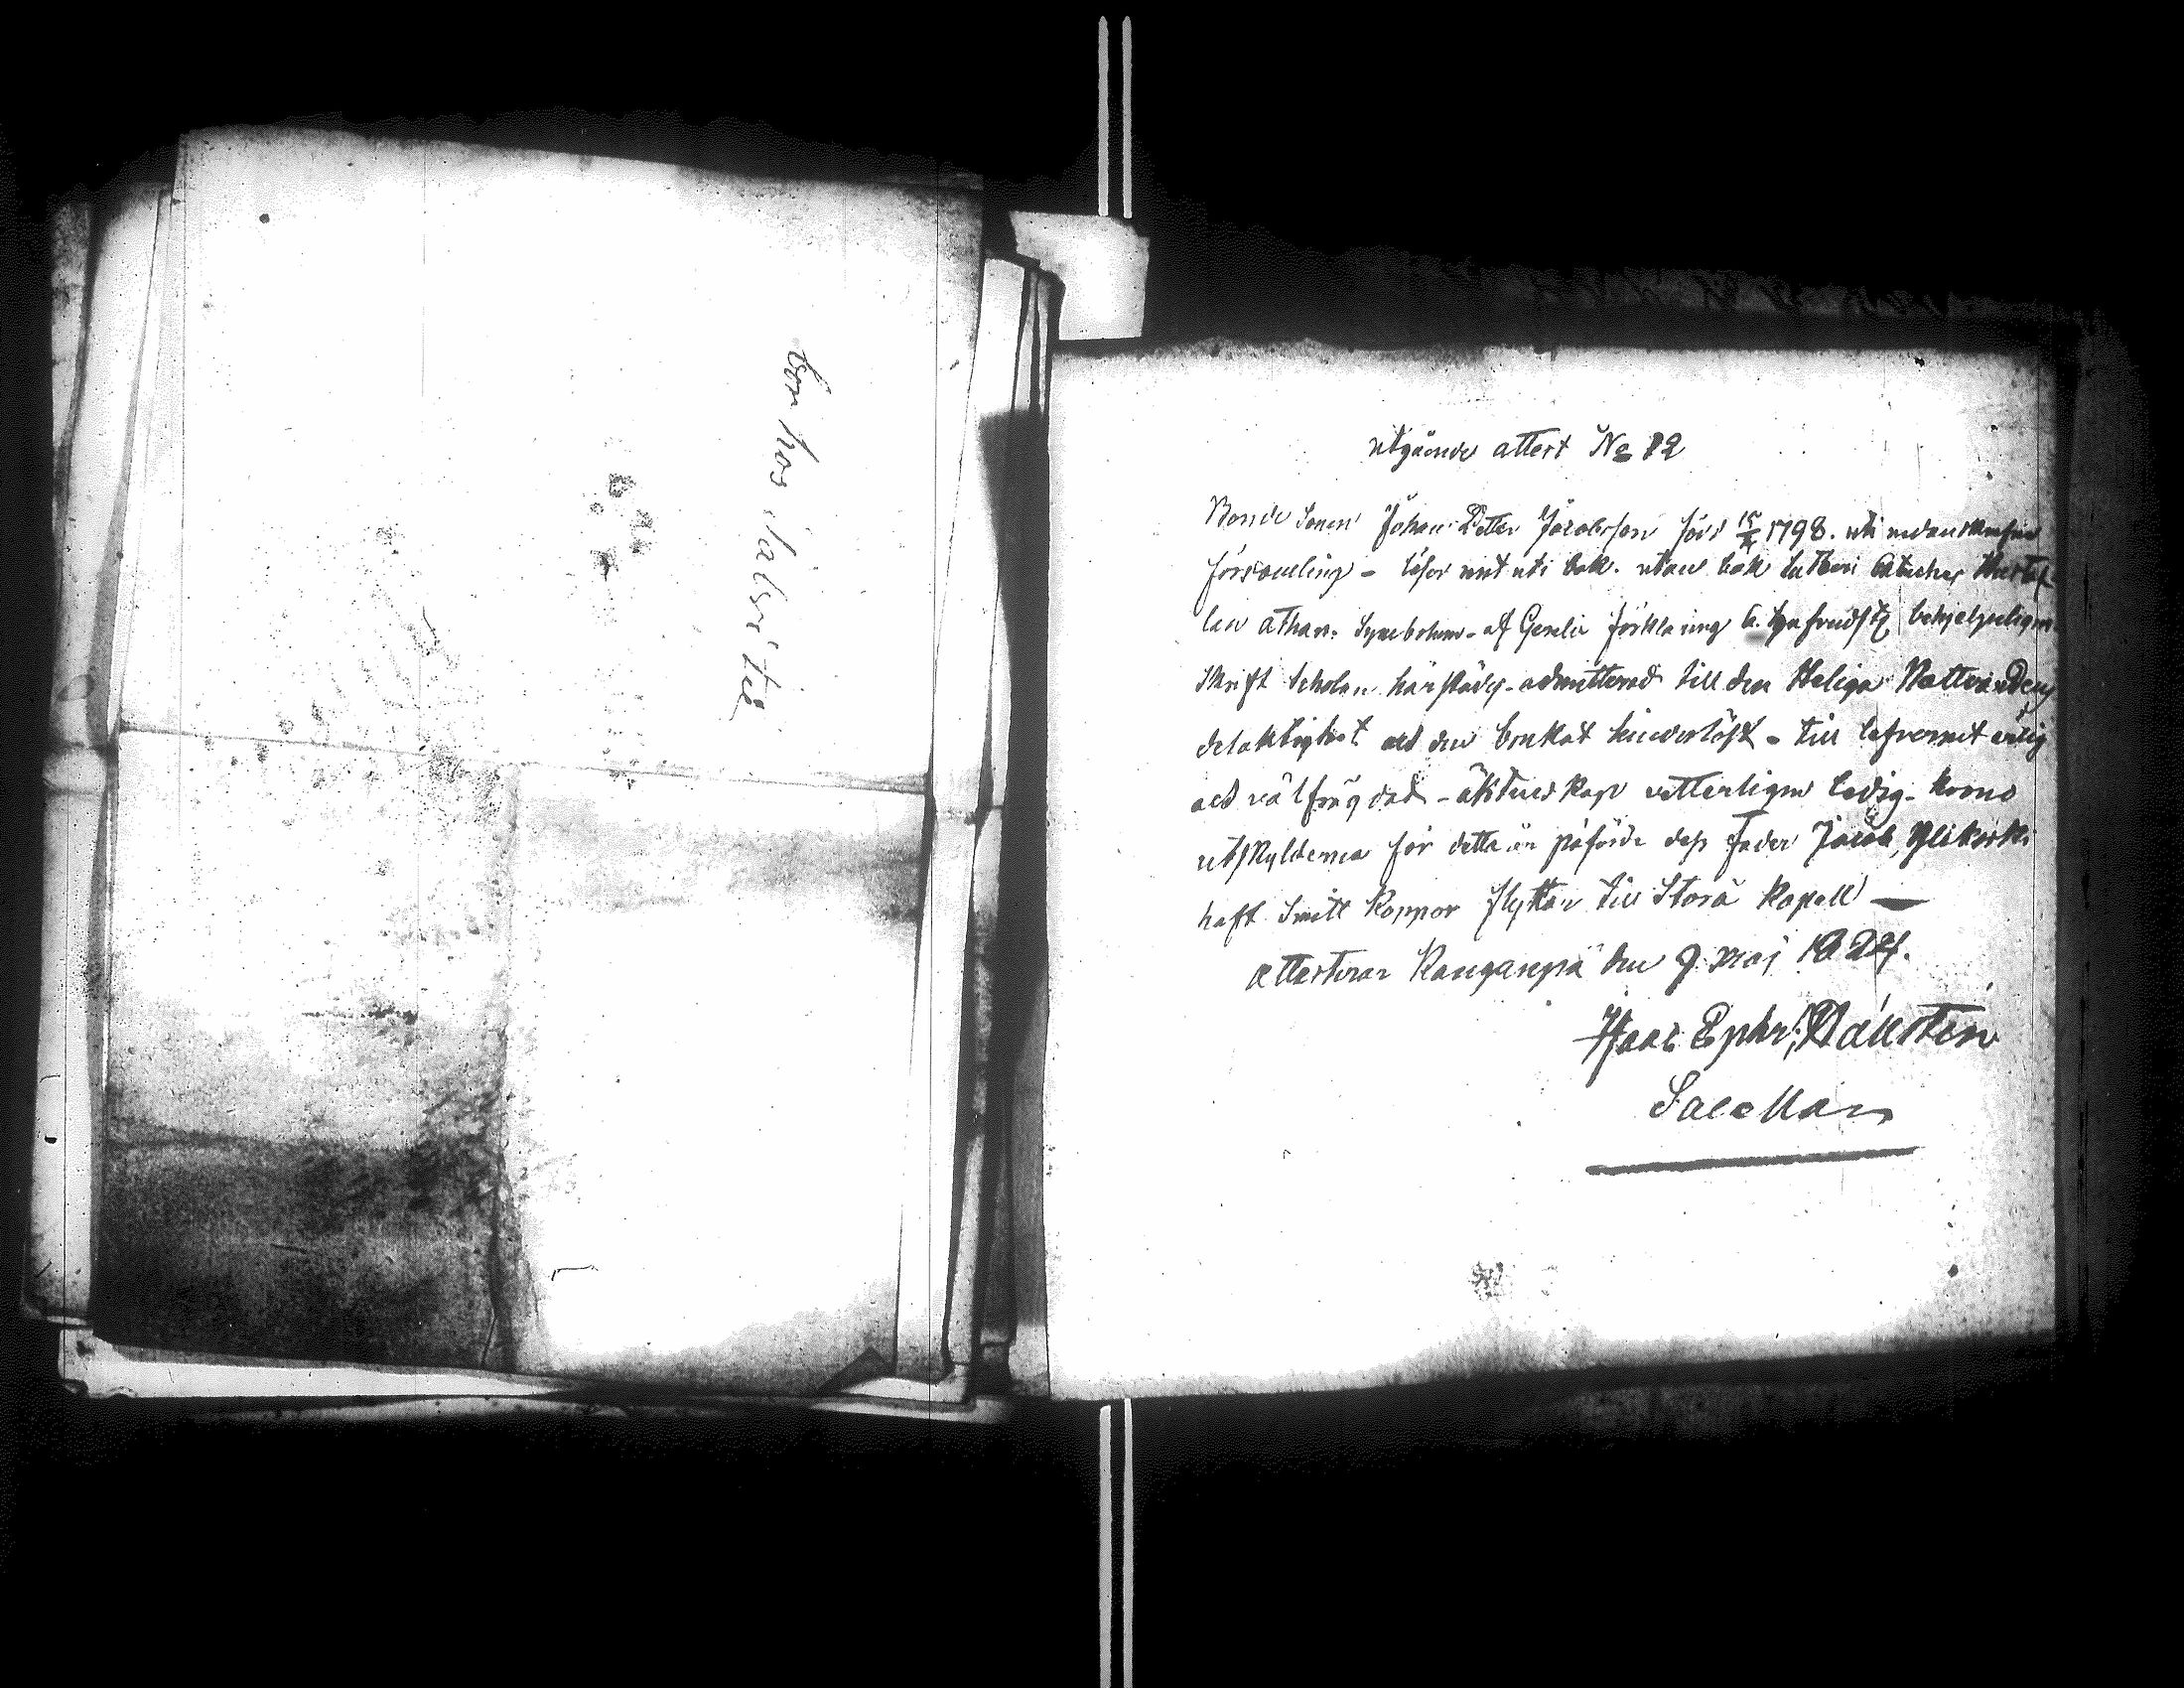 bor hos
utgående attest No 12
Bonde Sonen Johan Petter Jacobsson född 15/X 1798. uti nedanskrefne
församling - läser uti bok. utan bok Lutheri Cateches Hustaf
len Athan. Symbolum - af Gezelii förklaring behjelpeligen
Skrift Scholan härstädes - admitterad till den Heliga Nattvardens
delaktighet och den brukat hinderlöst - till lefvernet ärlig
och välfrägdad - äktenskap vetterligen ledig - krono
utskylderna för detta år påförde dess Fader Jacob Ylikoski
haft Smitt Koppor flyttar till Storå Kapell —
attesterar Kangaspä den 9 Maj 1824.
Isaac Ephr. Wallstén
Sacellan